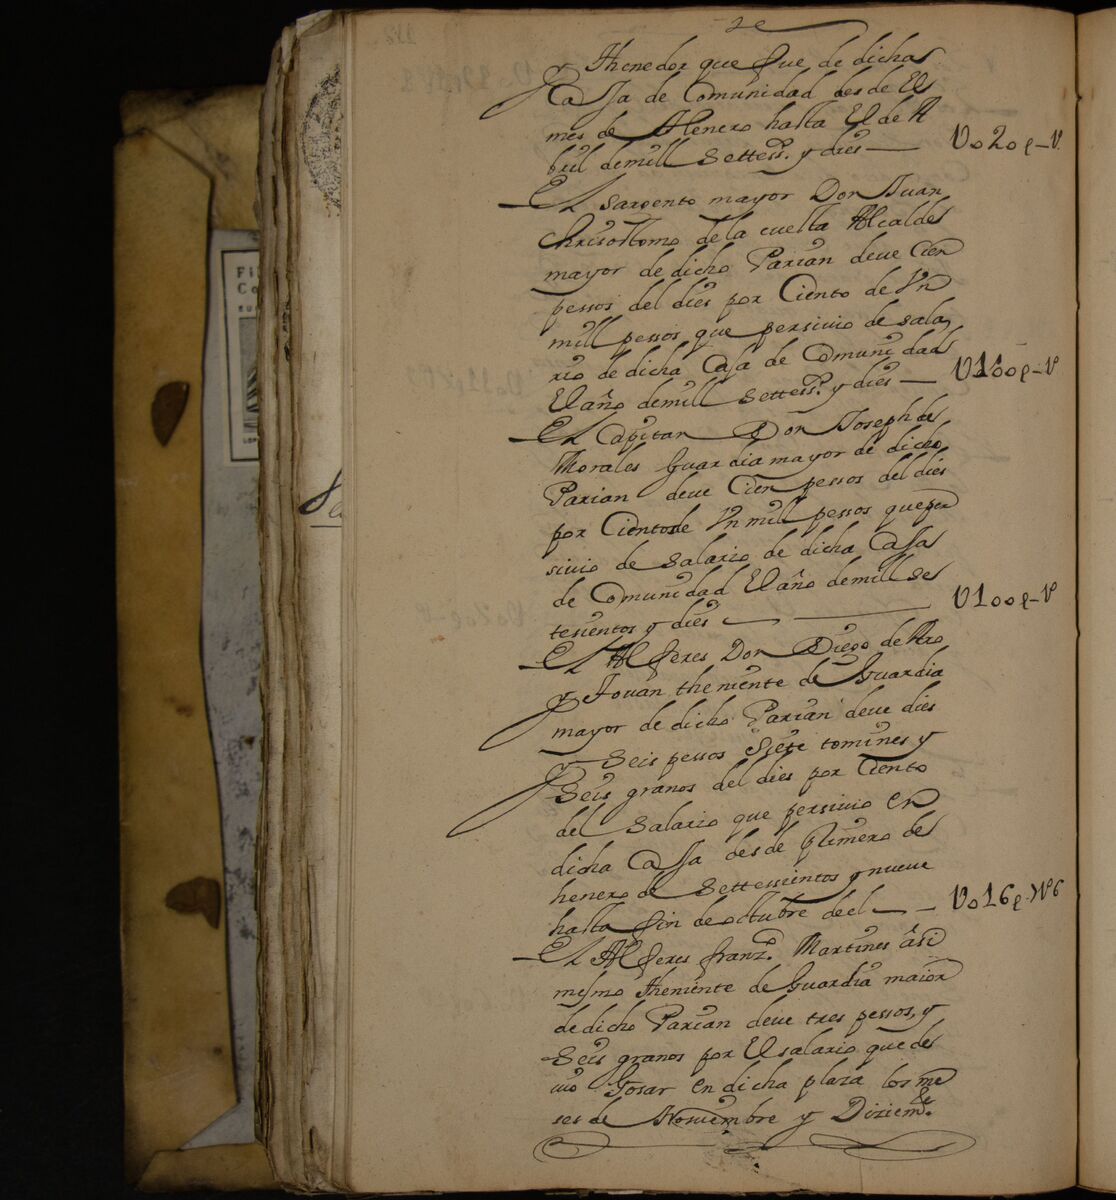 de
y Thenedor que fue de dicha
Cassa de Comunidad desde El
mes de Henero hasta El de A
bril demill Settess.s y dies — U020p–U.
El Sargento mayor Don Juan
Chrisosttomo de la cuesta Alcalde
mayor de dicho Parian deve Cien
pessos del dies por Ciento de Un
mill pessos que persivio de sala
rio de dicha Casa de Comunidad
El año demill Settess.s y dies — U100p–U
El Capitan Don Joseph de
Morales Guardia mayor de dicho
Parian deve Cien pessos del dies
por Ciento de Un mill pessos que per
sivio de Salario de dicha Casa
de Comunidad El año demill Se
tesientos y dies — U100p–U
El Alferes Don Diego de
y Jouan theniente de Guardia
mayor de dicho Parian deve dies
y Seis pessos Siete tomines y
Seis granos del dies por Ciento
del Salario que persivio en
dicha Cassa desde Primero de
henero de Settessientos y nueve
hasta fin de octubre de el — U016p.7U6
El Alferes franz.co Martines asi
mesmo theniente de Guardia maior
de dicho Parian deve tres pessos, y
Seis granos por El salario que de
vio Gosar en dicha plaza los me
ses de Noviembre y Diziem.e
Fi
Co